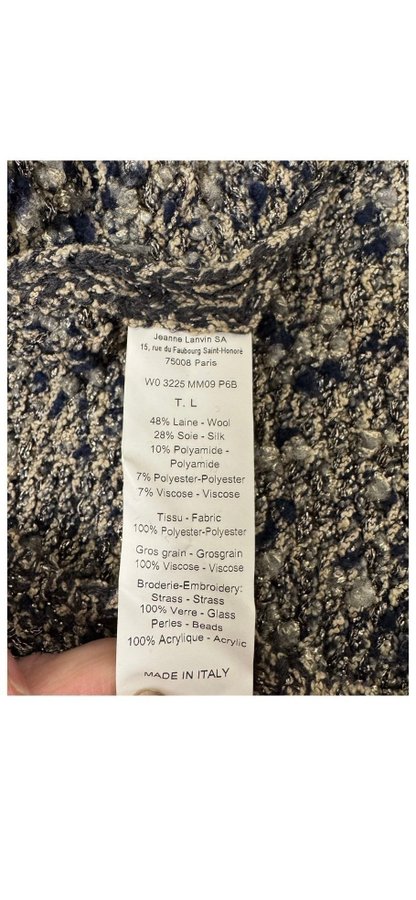 Jeanne Lanvin SA
15, rue du Faubourg Saint-Honoré
75008 Paris
W0 3225 MM09 P6B
T. L
48% Laine - Wool
28% Soie - Silk
10% Polyamide -
Polyamide
7% Polyester-Polyester
7% Viscose - Viscose
Tissu - Fabric
100% Polyester-Polyester
Gros grain - Grosgrain
100% Viscose - Viscose
Broderie-Embroidery:
Strass - Strass
100% Verre - Glass
Perles - Beads
100% Acrylique - Acrylic
MADE IN ITALY